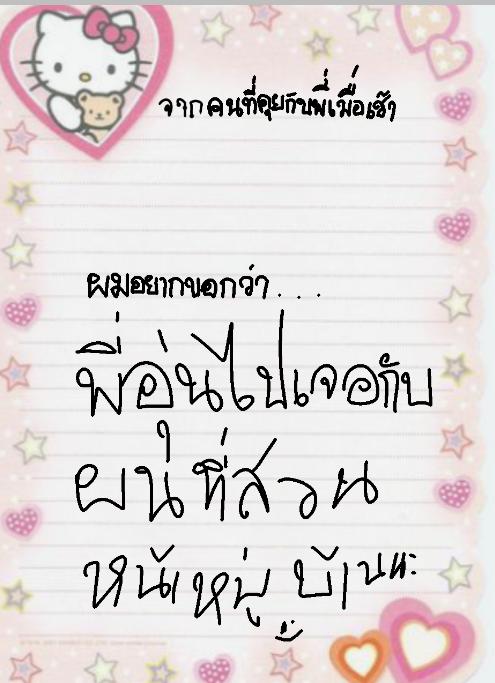 จากคนที่คุยกับพี่เมื่อเช้า
ผมอยากบอกว่า...
พี่อุ่นไปเจอกับ
ผมที่สวน
หน้าหมู่บ้านนะ